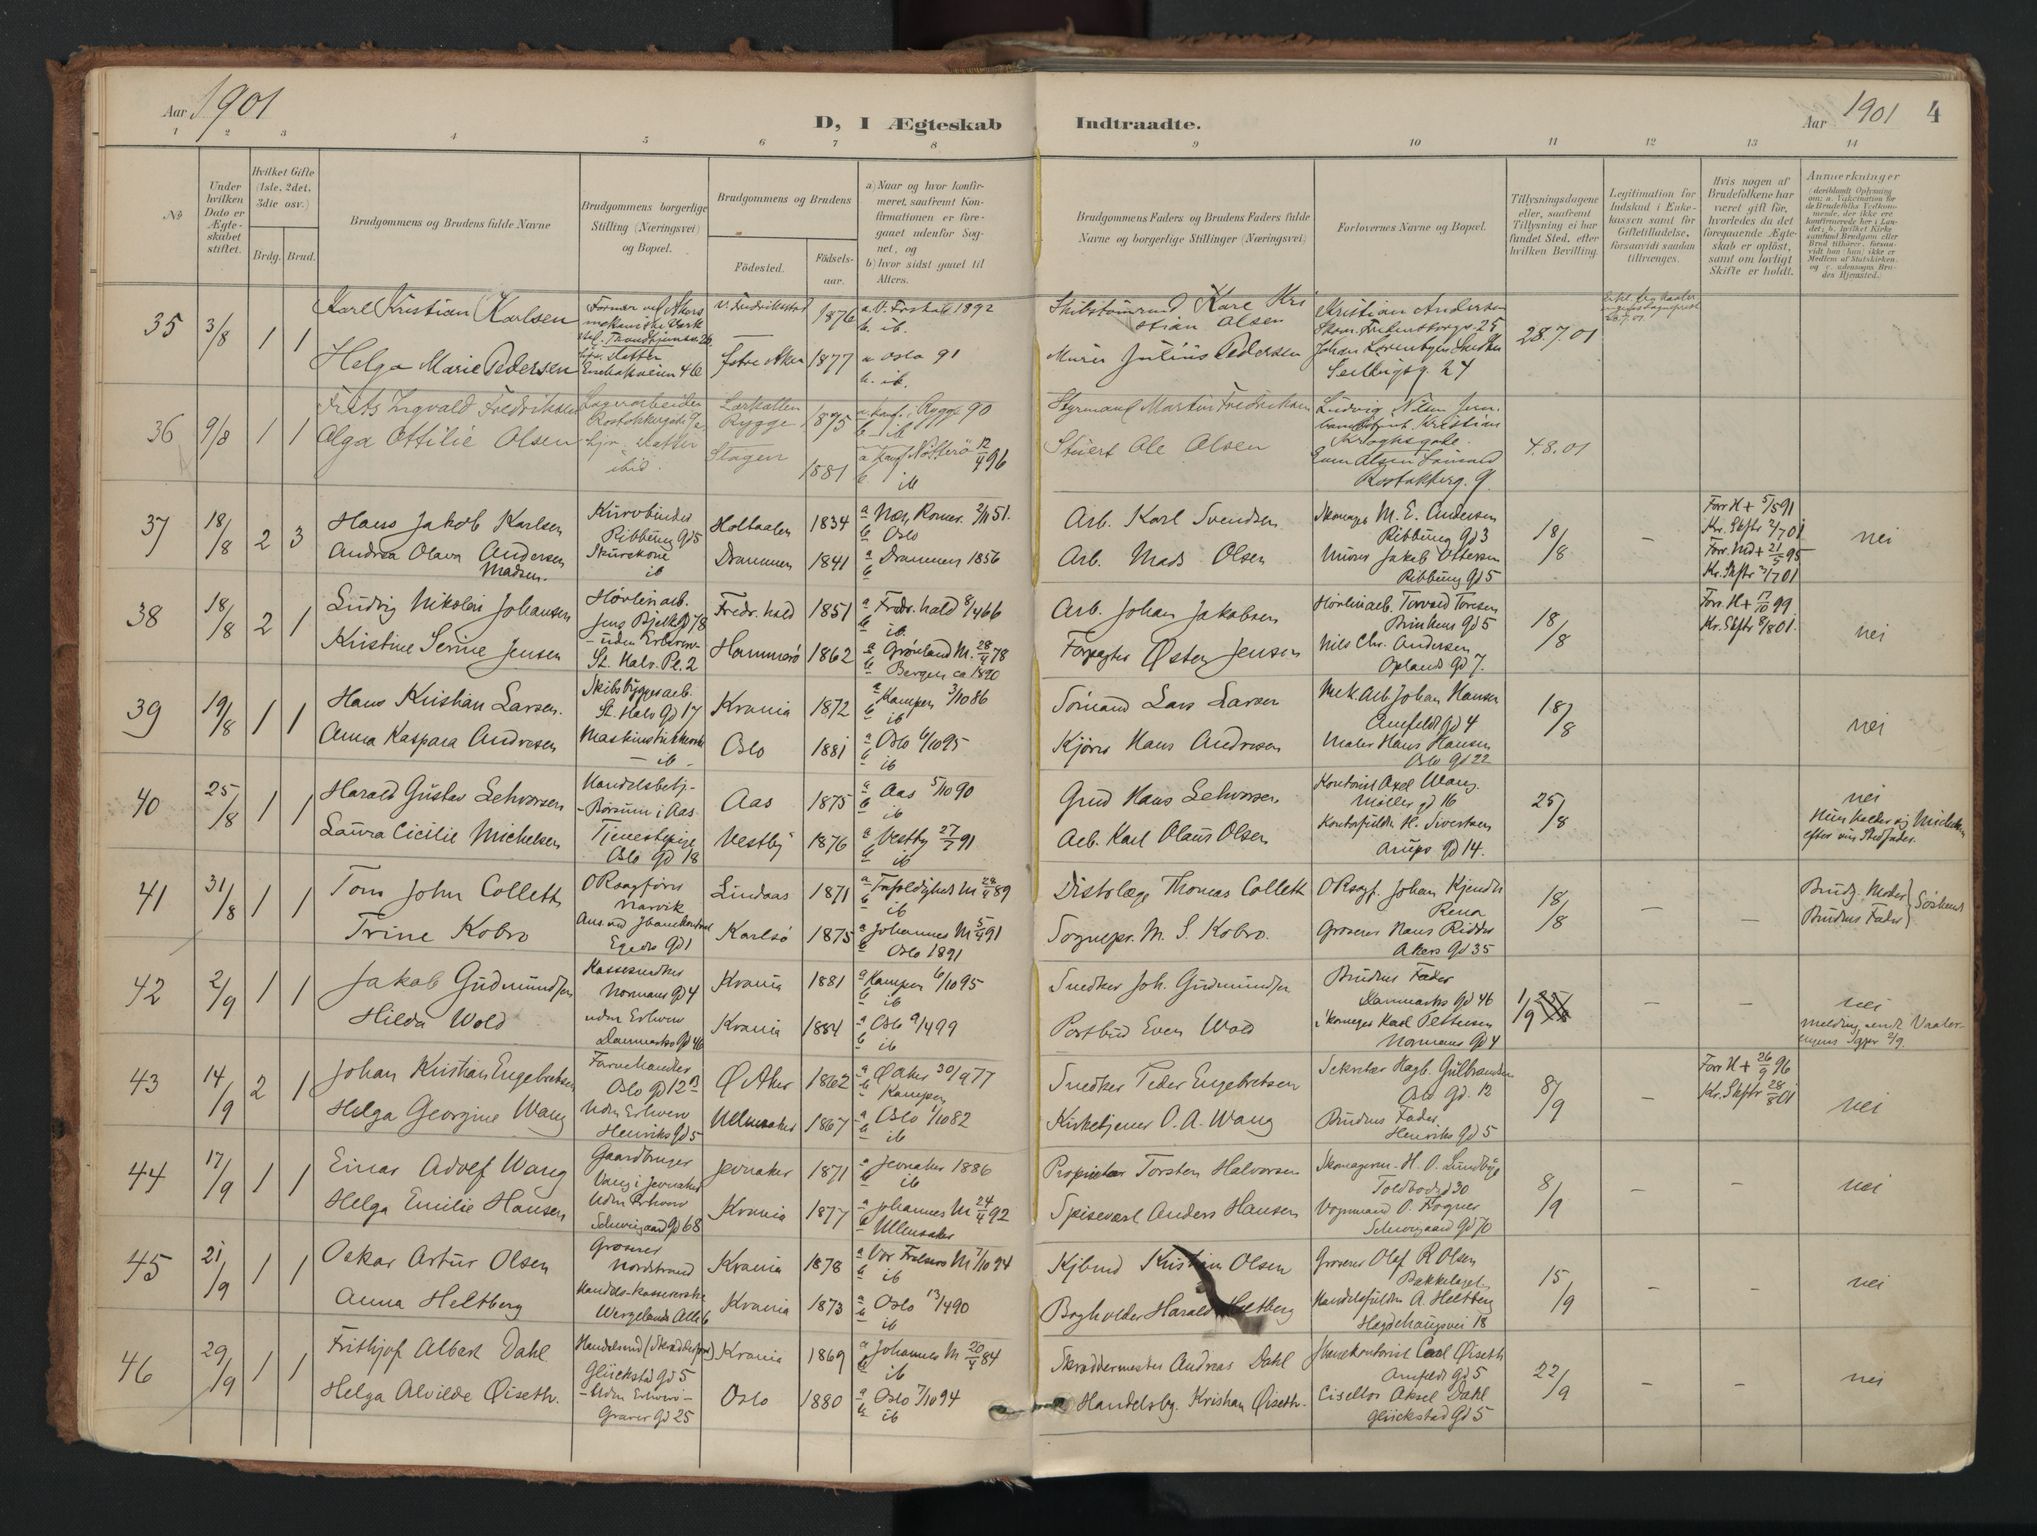 Aar 1901
D, I Ægteskab Indtraadte.
Aar 1901 4
1 2 3 4 5 6 7 8 9 10 11 12 13 14
No
Under hvilken Dato er Ægteskabet stiftet.
Hvilket Gifte (1ste, 2det, 3die osv.)
Brdg. Brud.
Brudgommens og Brudens fulde Navne
Brudgommens borgerlige Stilling (Næringsvei) og Bopæl.
Brudgommens og Brudens
Födested. Födselsaar.
a) Naar og hvor konfirmeret, saafremt Konfirmationen er foregaaet udenfor Sognet, og
b) hvor sidst gaaet til Alters.
Brudgommens Faders og Brudens Faders fulde Navne og borgerlige Stillinger (Næringsvei)
Forlovernes Navne og Bopæl.
Tillysningsdagene eller, saafremt Tillysning ei har fundet Sted, efter hvilken Bevilling.
Legitimation for Indskud i Enkekassen samt for Giftetilladelse, forsaavidt saadan tiltrænges.
Hvis nogen af Brudefolkene har været gift för, hvorledes da det foregaaende Ægteskab er oplöst, samt om lovligt Skifte er holdt.
Anmerkninger
35 3/8 1 1 Karl Kristian Karlsen
1876 a. V. Fredrikst. 1892
b. ib.
Kristian Andersen
28.7.01
Helga Marie Pedersen
Enebakveien 46 Østre Aker 1877 a. Oslo 91
b. ib.
Murer Julius Pedersen
Seilduksg. 24
36 9/8 1 1 Frits Ingvald Fredriksen
Lagerarbeider
Rygge 1875 a. konf. i Rygge 90
b. ib
Styrmand Martin Fredriksen Ludvig Nilsen
Olga Ottilie Olsen
ibid. 1881 a. konf. Nötterö 12/4 96
b. ib
Stuert Ole Olsen
4.8.01
37 18/8 2 3 Hans Jakob Karlsen
Kurvbinder
Ribbung gd 5 Holtaalen 1834
b Oslo
Arb. Karl Svendsen M. E. Andersen
Ribbung gd 3
18/8 – Forr. H + 5/5 91
Kr. Skftr 2/7 01
nei
Andrea Olava Andersen
Madsen.
Skurekone
ib Drammen 1841 a Drammen 1856
b
Arb. Mads Olsen Murer Jakob Ottersen
Ribbung gd 5
Forr. Md + 21/5 95
Kr. Skftr 2/7 01
38 18/8 2 1 Ludvig Nikolai Johansen
Hövleriarb.
Jens Bjelkes gd 78 Fredr.hald 1851 a Fredr.hald 8/4 66
b ib.
Arb. Johan Jakobsen Hövleriarb. Torvald Toresen
Brinkens gd 5
18/8 Forr. H + 17/10 99.
Kr. Skftr 8/8 01.
nei
Kristine Serine Jensen
uden Erhverv
St. Halv. Pl. 2 Hammerö 1862 a Grönland M. 28/4 78
b Bergen ca 1890
Forpagter Østen Jensen Nils Chr. Andersen
Oplands gd 7.
39 19/8 1 1 Hans Kristian Larsen.
Skibsbyggerarb.
St. Halv gd 17 Krania 1872 a Kampen 3/10 86
b ib
Sömand Lars Larsen Mek Arb. Johan Hansen
Arnfeldts gd 4
18/8
nei
Anna Kaspara Andresen
ib Oslo 1881 a Oslo 6/10 95
b ib
Kjörer Hans Andresen Maler Hans Hansen
Oslo gd 22
40 25/8 1 1 Harald Gustav Sehvorsen
Handelsbetj.
Börsum i Aas Aas 1875 a Aas 5/10 90
b ib
Grd Hans Sehvorsen Kontorist Axel Wang.
Möller gd 16
25/8
nei
Laura Cicilie Michelsen
Tjenestepige
Oslo gd 18 Vestby 1876 a Vestby 27/9 91
b ib
Arb. Karl Olaus Olsen Kontorfuldm. H. Sivertsen
Arups gd 14.
Hun kalder sig Michelsen
efter sin Stedfader.
41 31/8 1 1 Tom John Collett
ORsagförer
Narvik Lindaas 1871 a Trefoldigheds M 28/4 89
b ib
Distslæge Thomas Collett ORsagf. Johan Kjendli
Rena
18/8 – – Brudg. Moder
Brudens Fader } Söskend
Trine Kobro
Ans. ved Jbanekontoret
Egedes gd 1 Karlsö 1875 a Johannes M 5/4 91
b Oslo 1891
Sognepr. M. S. Kobro. Grosserer Hans Ridder
Akers gd 35
42 2/9 1 1 Jakob Gudmundsen
Kassesnedker
Normans gd 4 Krania 1881 a Kampen 6/10 95
b ib
Snedker Joh. Gudmundsen Brudens Fader
Danmarks gd 46
1/9 – – nei
Hilda Wold
uden Erhverv
Danmarks gd 46 Krania 1884 a Oslo 9/4 99
b ib
Postbud Even Wold Skomager Karl Pettersen
Normans gd 4
melding sendt Vaalerengens Sgpr 2/9.
43 14/9 2 1 Johan Kristian Engebretsen
Farvehandler
Oslo gd 12 B Ø Aker 1862 a Ø Aker 30/9 77
b Kampen
Snedker Peder Engebretsen Sekretær Hagb. Gulbrandsen
Oslo gd. 12
8/9 – Forr H + 26/9 96
Kr. Skftr 28/8 01
nei
Helga Georgine Wang
Uden Erhverv
Henriks gd 5 Ullensaker 1867 a Oslo 1/10 82
b ib
Kirketjener O. A. Wang Brudens Fader.
Henriks gd 5
44 17/9 1 1 Einar Adolf Wang
Gaardbruger
Vang i Jevnaker Jevnaker 1871 a Jevnaker 1886
b ib
Proprietær Torsten Halvorsen Skomagerm. H. O. Lundbye
Toldbodgd 30
8/9 – – nei
Helga Emilie Hansen
Uden Erhverv
Schweigaard gd 68 Krania 1877 a Johannes M 24/4 92
b Ullensaker
Spisevært Anders Hansen Vognmand O. Fogner
Schweigaard gd 70
45 21/9 1 1 Oskar Artur Olsen
Grosserer
Nordstrand Krania 1878 a Vor Frelsers M 7/10 94
b ib
Kjbmd Kristian Olsen Grosserer Olaf R Olsen
Bækkelaget
15/9 – – nei
Anna Heltberg
Wergelands Allé 6 Krania 1873 a Oslo 13/4 90
b ib
Bogholder Harald Heltberg Handelsfuldm. A. Heltberg
Hægdehaugsvei 18
46 29/9 1 1 Frithjof Albert Dahl
Handelsmd (Skrædderforr)
Glückstad gd 5 Krania 1869 a Johannes M 20/4 84
b ib
Skræddermester Andreas Dahl Jbanekontorist Carl Øiseth
Arnfeldts gd 5
22/9 – – nei
Helga Alvilde Øiseth.
Uden Erhverv
Graver gd 25 Oslo 1880 a Oslo 7/10 94
b ib
Handelsbg. Kristian Øiseth. Cisellör Aksel Dahl
Glückstad gd 5